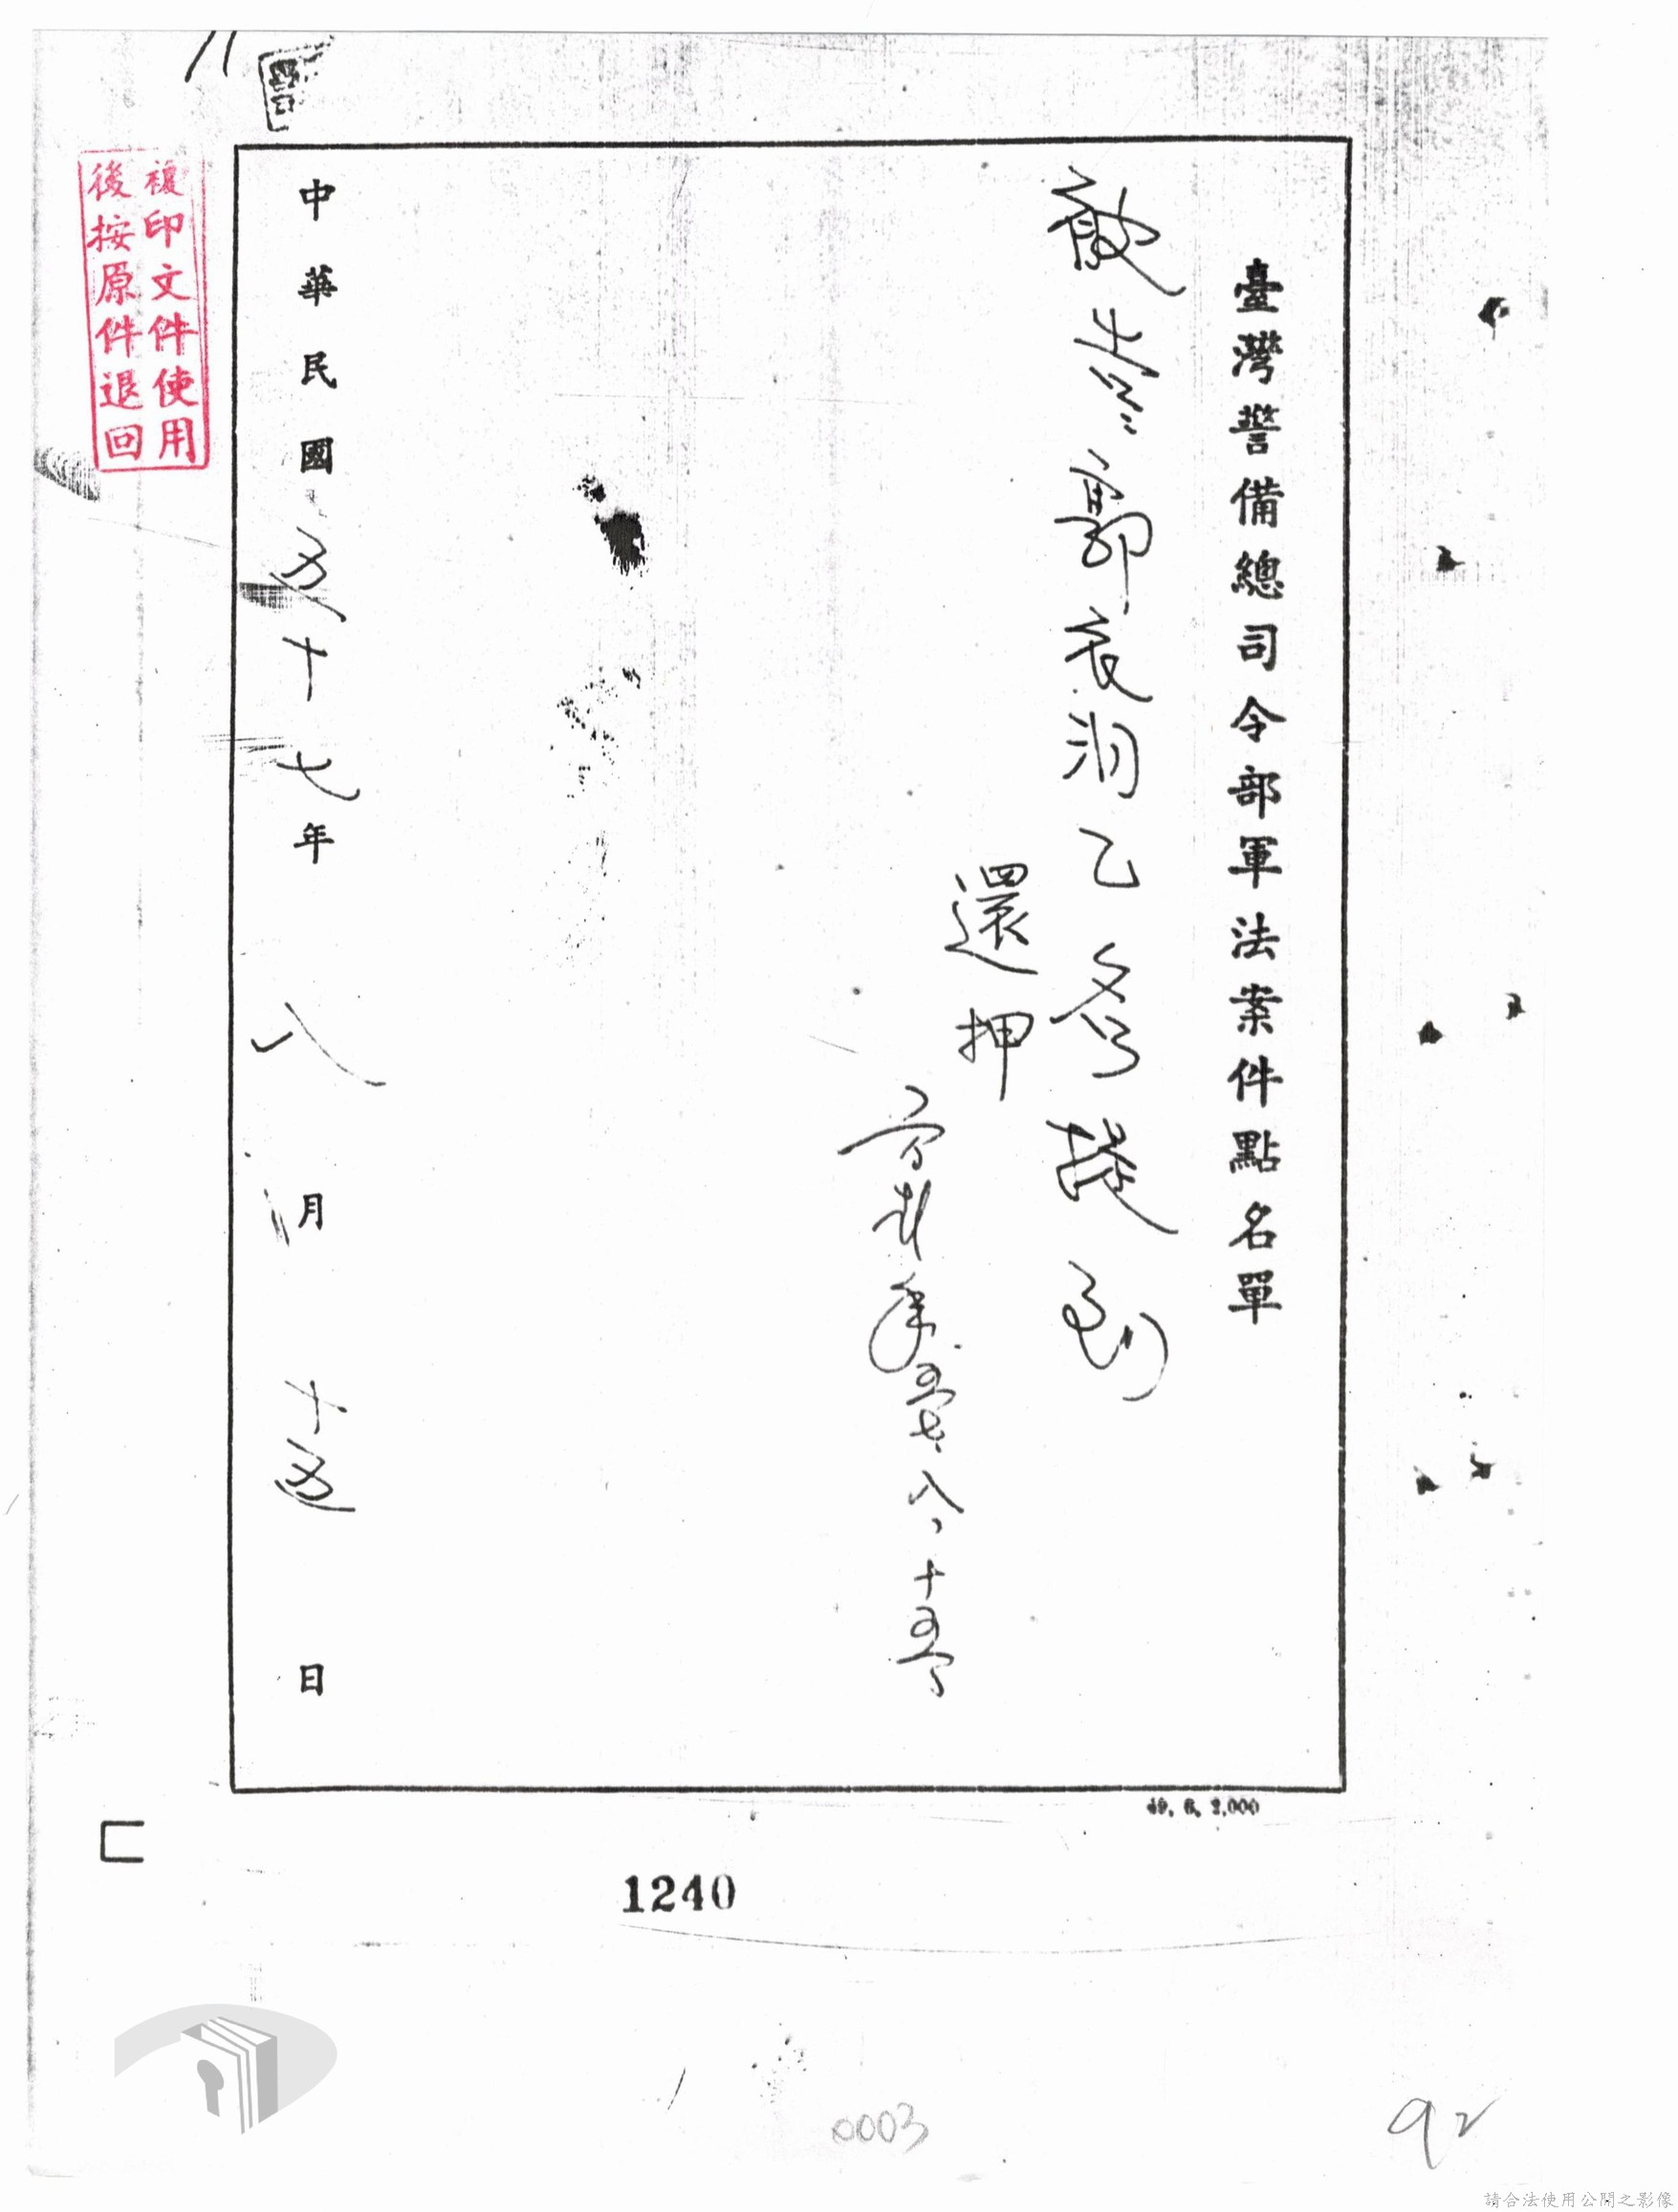 臺灣警備總司令部軍法案件點名單
郭衣洞乙名提到
還押
五七、八、十五
中華民國五十七年八月十五日
複印文件使用
後按原件退回
49. 6. 2,000
1240
0003
92
請合法使用公開之影像